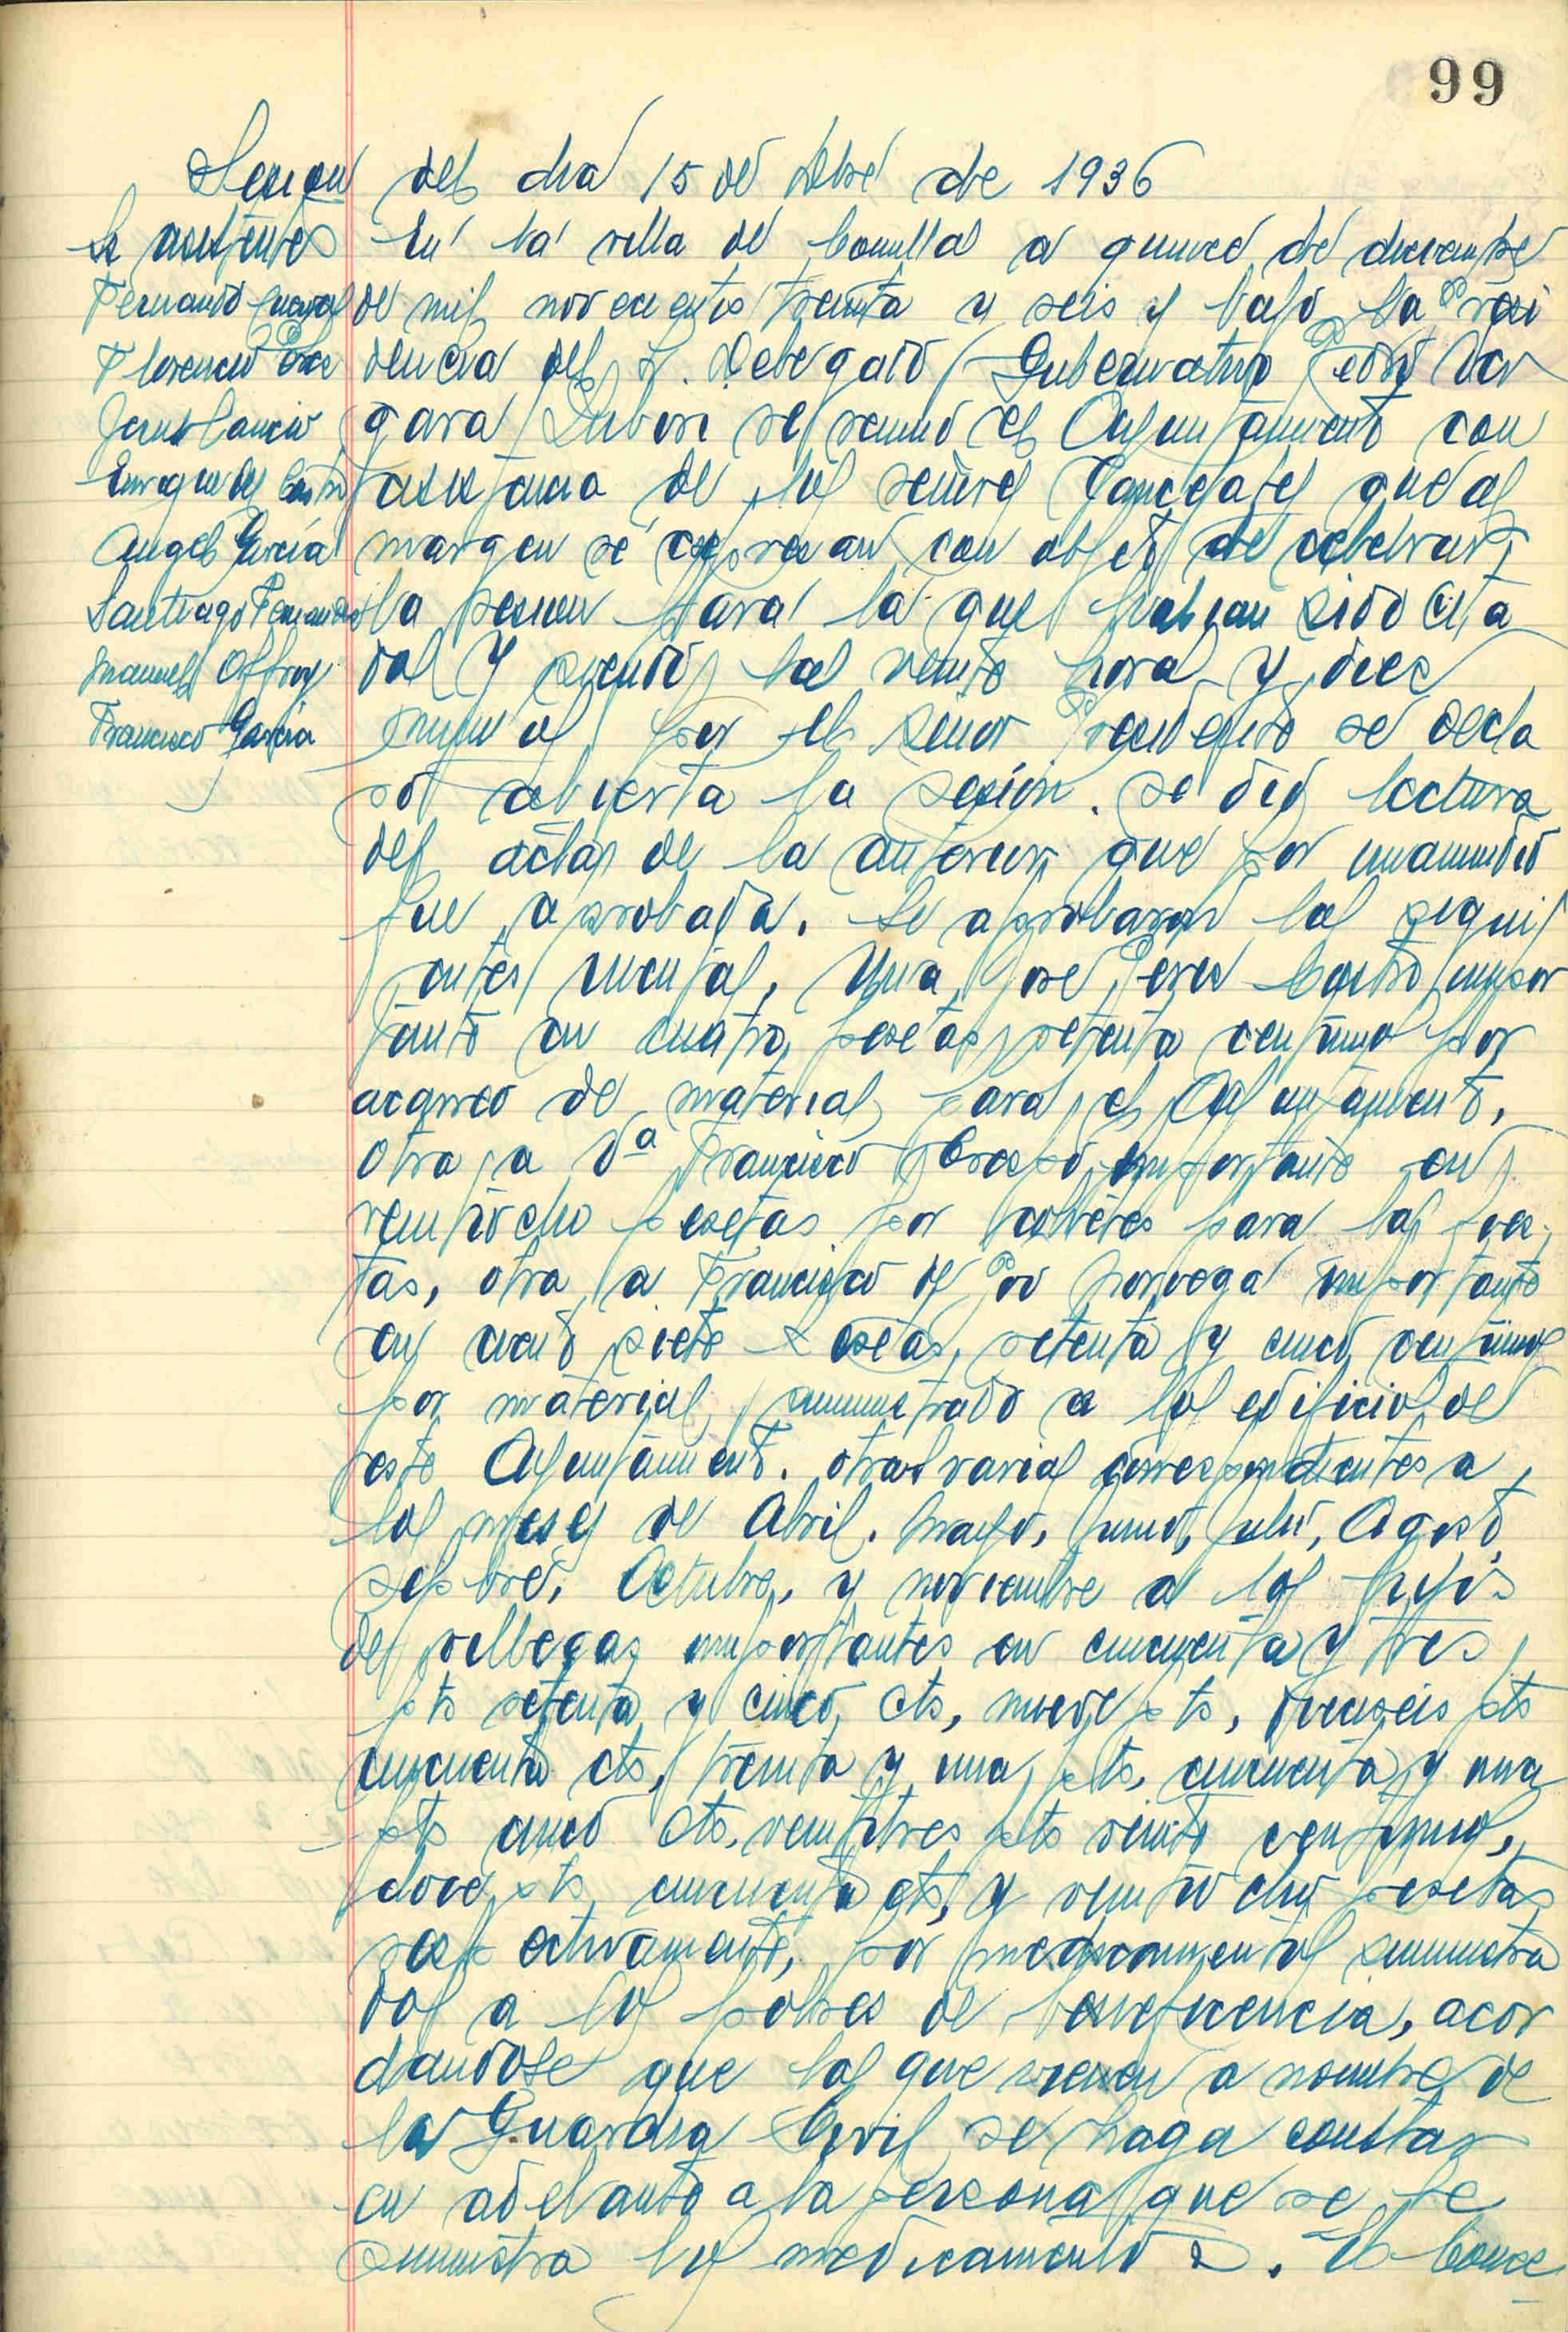 99
Sesion del dia 15 de Dbre de 1936
Sr asistentes
Fernando
Florencio Perez
Jesus Cancio
Enrique del Castro
Angel Garcia
Santiago Fernandez
Manuel
Francisco Garcia
En la villa de Comillas a quince de diciembre
de mil novecientos treinta y seis y bajo la Presi
dencia del Sr. Delegado Gubernativo Pedro Ver
gara se reunio el Ayuntamiento con
asistencia de los señores Concejales que al
margen se expresan con objeto de celebrar
la sesion para la que habian sido cita
dos Y siendo las veinte horas y diez
minutos por el señor Presidente se decla
ró abierta la sesión. se dió lectura
del acta de la anterior que por unanimidad
fue aprobada. Se aprobaron las sigui
entes cuentas, Una José Perez Castro impor
tante en cuatro pesetas setenta centimos por
acarreo de material para el Ayuntamiento,
Otra a Dª Francisco Crespo importante en
veintiocho pesetas por cohetes para las fies
tas, otra a Francisco de Pio Noroega importante
en ciento siete pesetas setenta y cinco centimos
por material suministrado a los edificios de
este Ayuntamiento. otras varias correspondientes a
los meses de Abril. Mayo, Junio, Julio, Agosto,
Sepbre, Octubre, y noviembre a los hijos
de Villegas importantes en cincuenta y tres
pts setenta y cinco cts, nueve pts, dieciseis pts
cincuenta cts, treinta y una pts, cincuenta y una
pts cinco cts. veintitres pts veinte centimos,
doce pts cincuenta cts, y veintiocho pesetas
respectivamente, por medicamentos suministra
dos a los pobres de beneficencia, acor
dandose que los que vienen a nombre de
la Guardia Civil se haga constar
en adelante a la persona que se le
suministra los medicamentos. El Conce